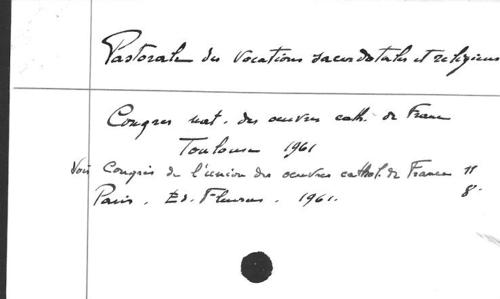 Pastorale des vocations sacerdotales et religieuses
Congres nat. des oeuvres cath. de France
Toulouse 1961
Voir Congrès de l'union des oeuvres cathol. de France 11
Paris. Ed. Fleurus. 1961. 8°